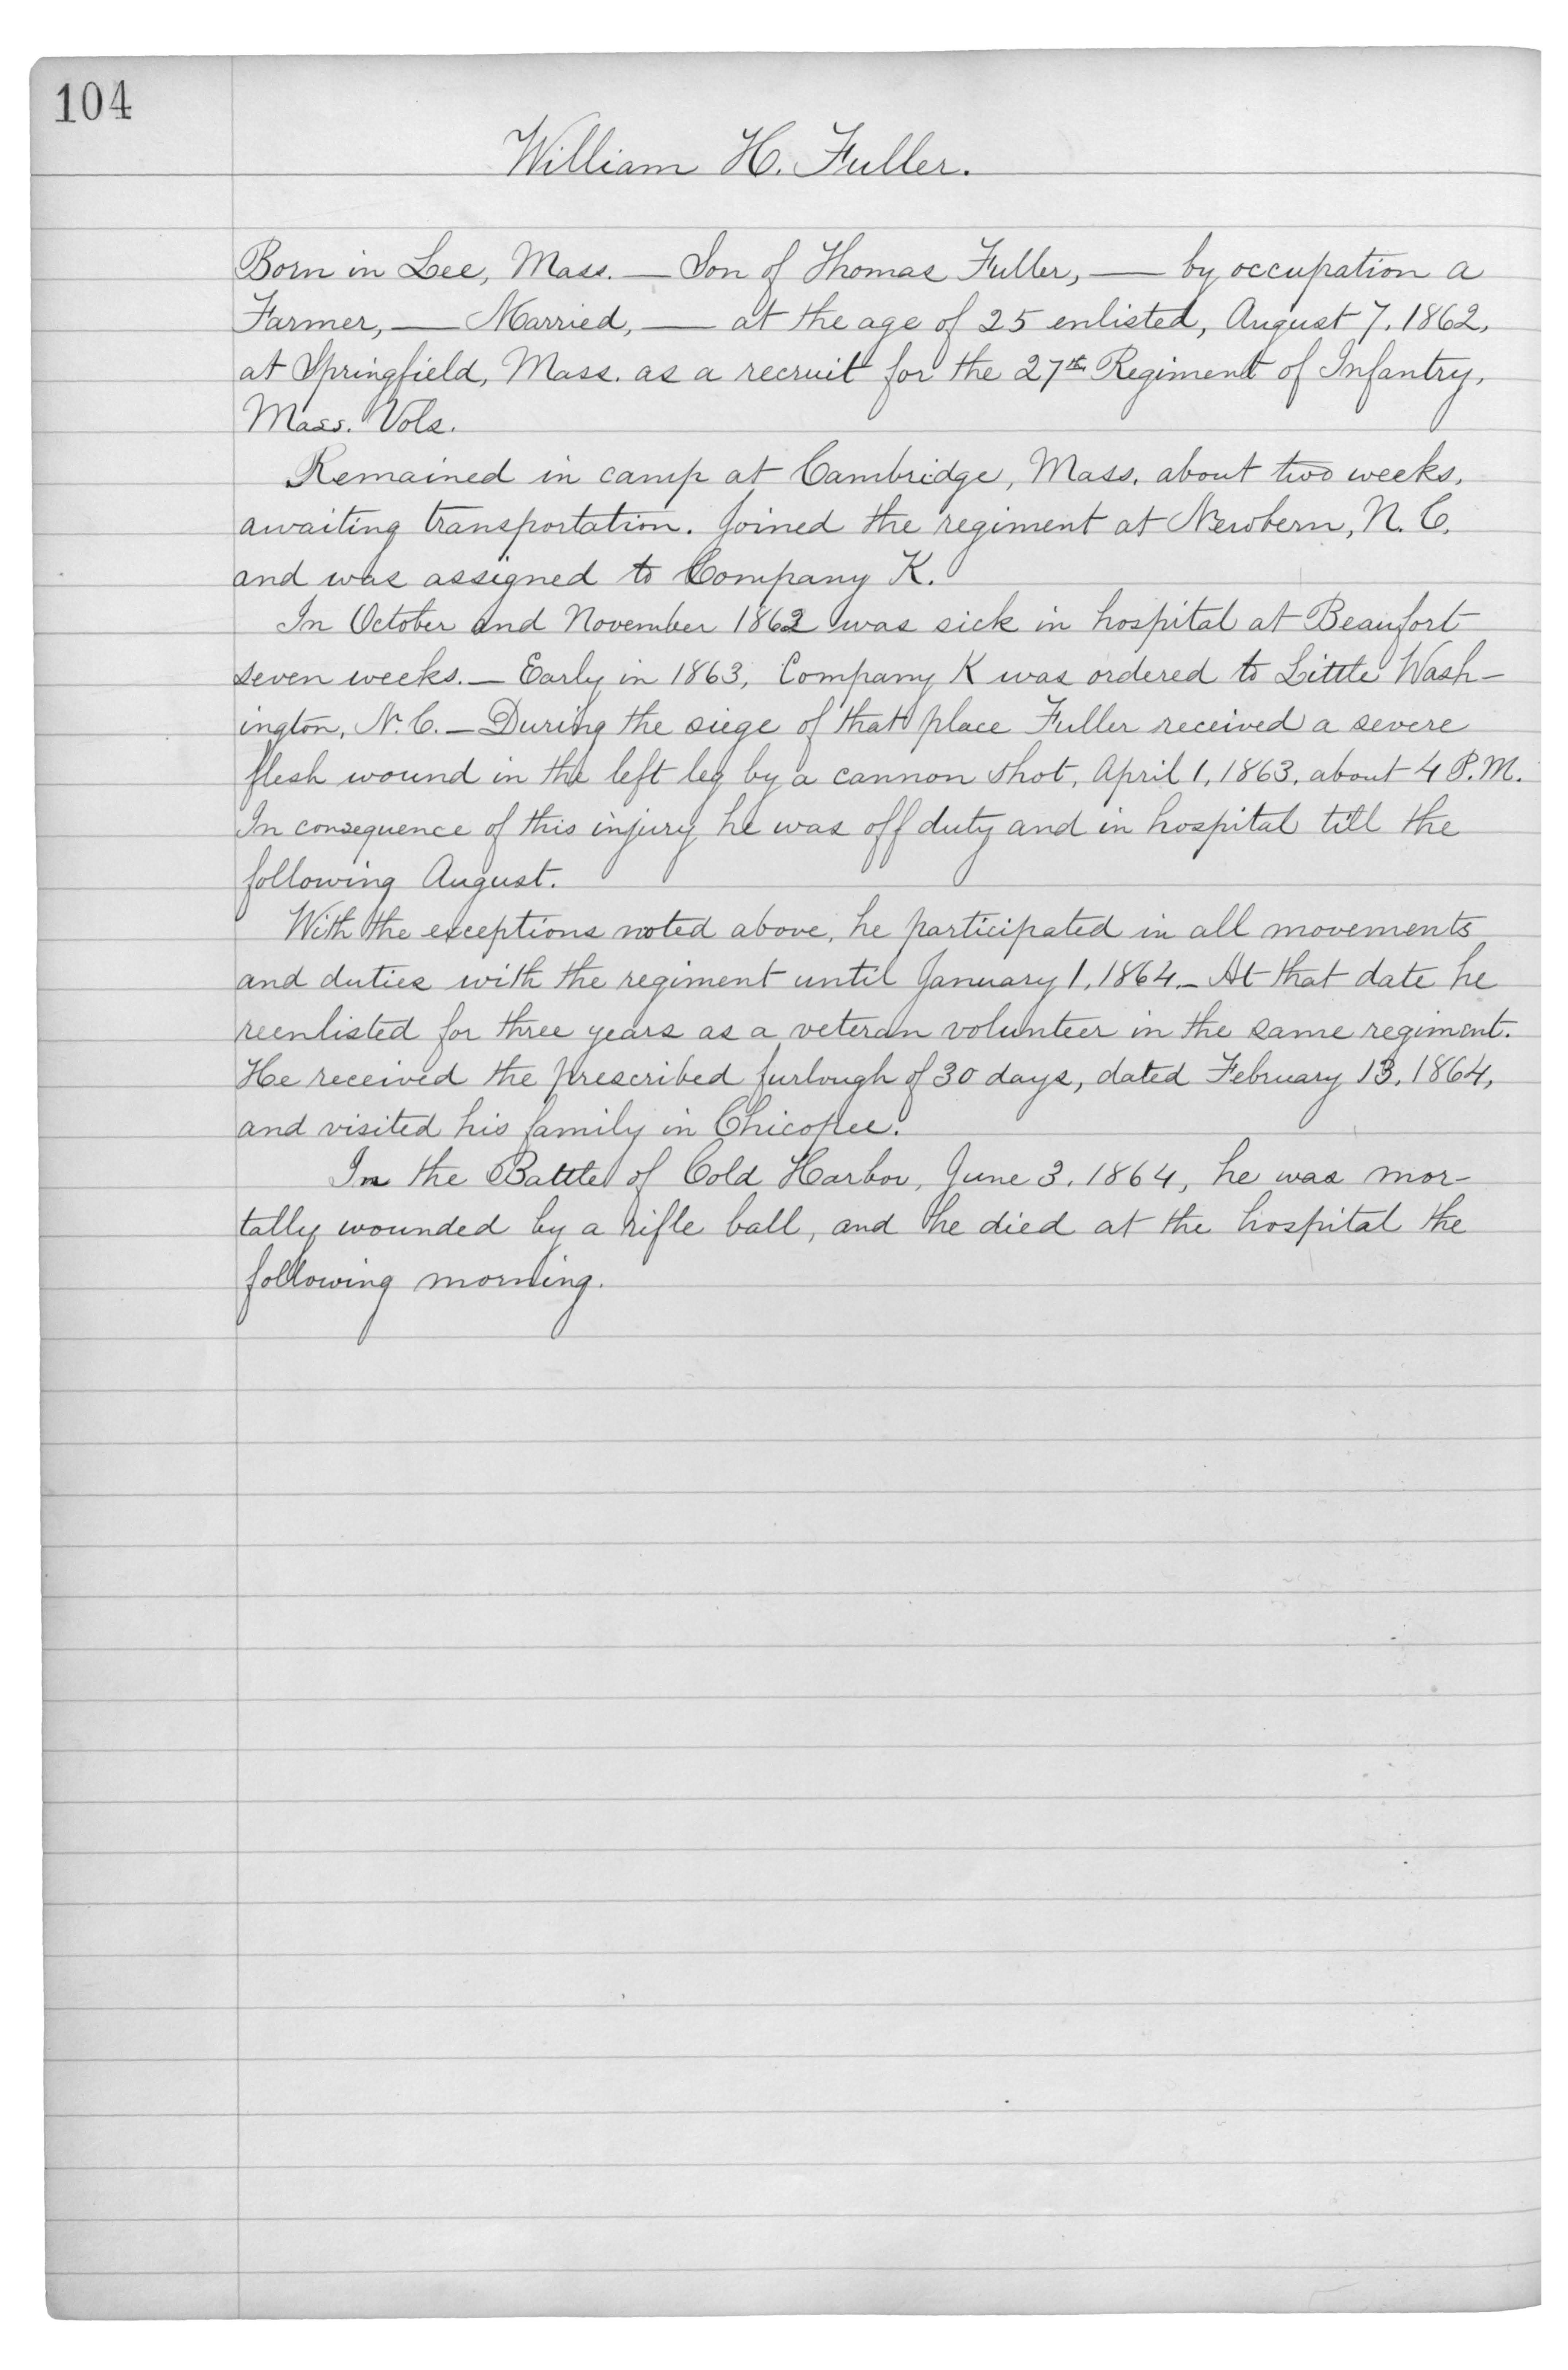 104
William H. Fuller.
Born in Lee, Mass. — Son of Thomas Fuller, — by occupation a
Farmer, — Married, — at the age of 25 enlisted, August 7, 1862,
at Springfield, Mass. as a recruit for the 27th Regiment of Infantry,
Mass. Vols.
Remained in camp at Cambridge, Mass. about two weeks,
awaiting transportation. Joined the regiment at Newbern, N. C.
and was assigned to Company K.
In October and November 1862 was sick in hospital at Beaufort
seven weeks. — Early in 1863, Company K was ordered to Little Wash-
ington, N. C. — During the siege of that place Fuller received a severe
flesh wound in the left leg by a cannon shot, April 1, 1863, about 4 P.M.
In consequence of this injury he was off duty and in hospital till the
following August.
With the exceptions noted above, he participated in all movements
and duties with the regiment until January 1, 1864. — At that date he
reenlisted for three years as a veteran volunteer in the same regiment.
He received the prescribed furlough of 30 days, dated February 13, 1864,
and visited his family in Chicopee.
In the Battle of Cold Harbor, June 3, 1864, he was mor-
tally wounded by a rifle ball, and he died at the hospital the
following morning.